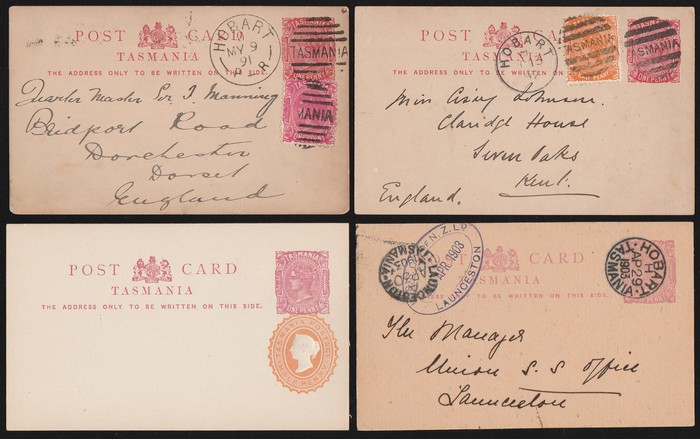 POST CARD
TASMANIA
THE ADDRESS ONLY TO BE WRITTEN ON THIS SIDE.
HOBART
MY 9
91
TASMANIA
ONE PENNY
Quarter Master Sir J. Manning
Bridport Road
Dorchester
Dorset
England
POST CARD
TASMANIA
THE ADDRESS ONLY TO BE WRITTEN ON THIS SIDE.
HOBART
TASMANIA
TASMANIA
Miss Johnson
Claridge House
Seven Oaks
Kent.
England.
POST CARD
TASMANIA
THE ADDRESS ONLY TO BE WRITTEN ON THIS SIDE.
TASMANIA
ONE PENNY
POST CARD
TASMANIA
THE ADDRESS ONLY TO BE WRITTEN ON THIS SIDE.
N.Z. LD
APR 1903
LAUNCESTON
TASMANIA
HOBART
AP 29
1903
TASMANIA
The Manager
Union S. S. Office
Launceston